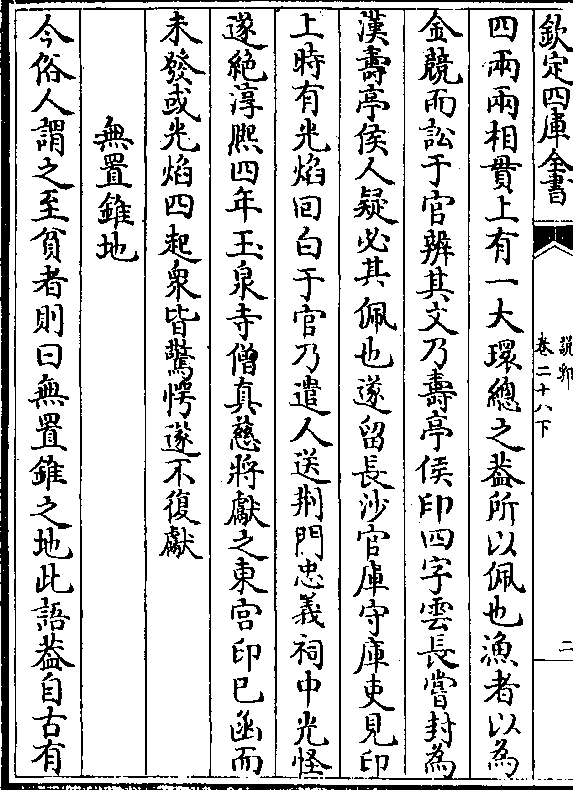 欽定四庫全書
說郛
卷二十八下
二
四兩兩相貫上有一大環總之葢所以佩也漁者以為
金競而訟于官辨其文乃壽亭侯印四字雲長嘗封為
漢壽亭侯人疑必其佩也遂留長沙官庫守庫吏見印
上時有光焰回白于官乃遣人送荆門忠義祠中光怪
遂絶淳熙四年玉泉寺僧真慈將獻之東宫印已函而
未發或光焰四起衆皆驚愕遂不復獻
無置錐地
今俗人謂之至貧者則曰無置錐之地此語葢自古有